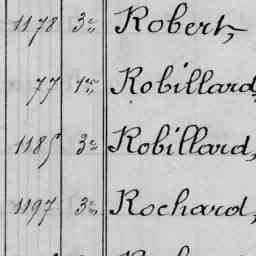 1178 3e Robert,
77 1er Robillard,
1185 3e Robillard,
1197 3e Rochard,